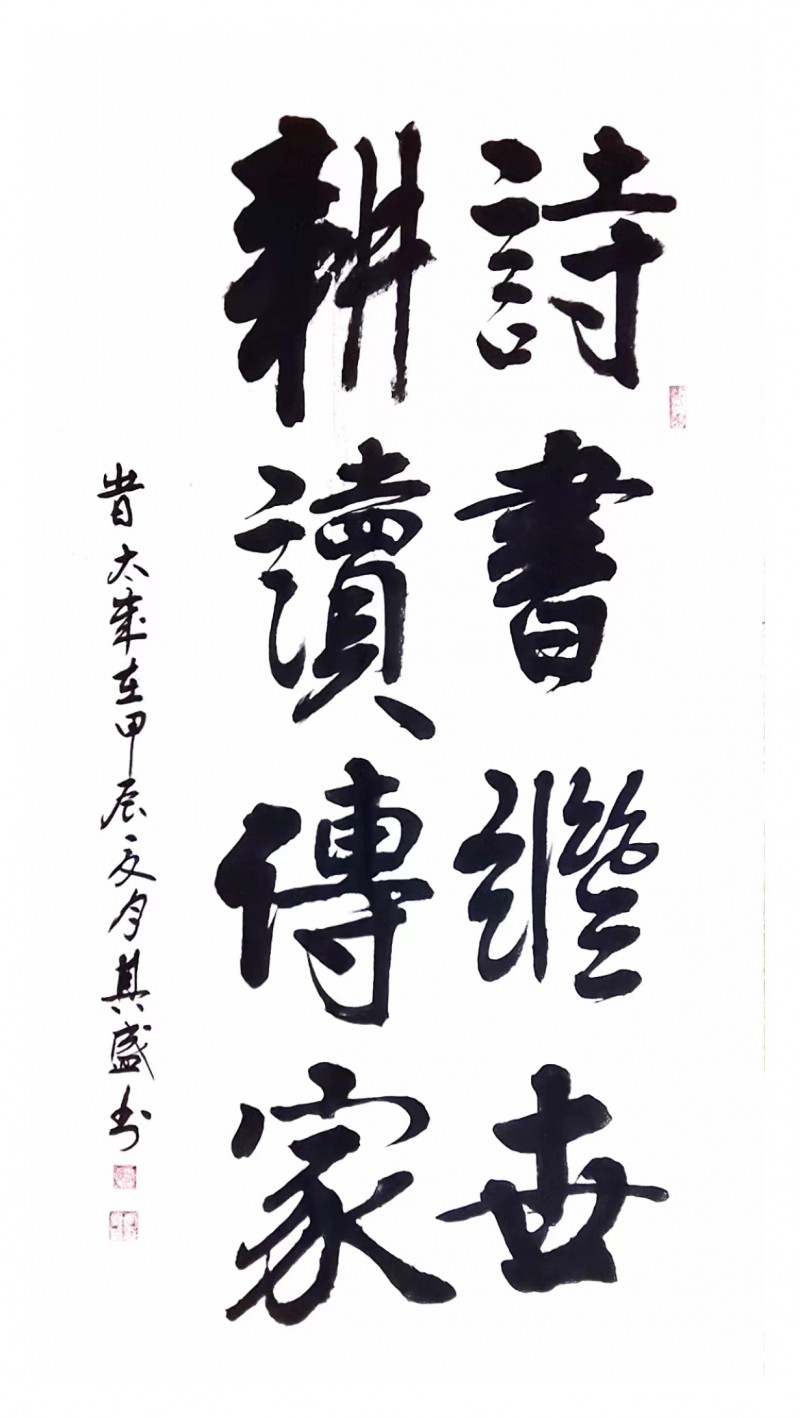 詩書繼世
耕讀傳家
昔太歲在甲辰之夏月其盛书